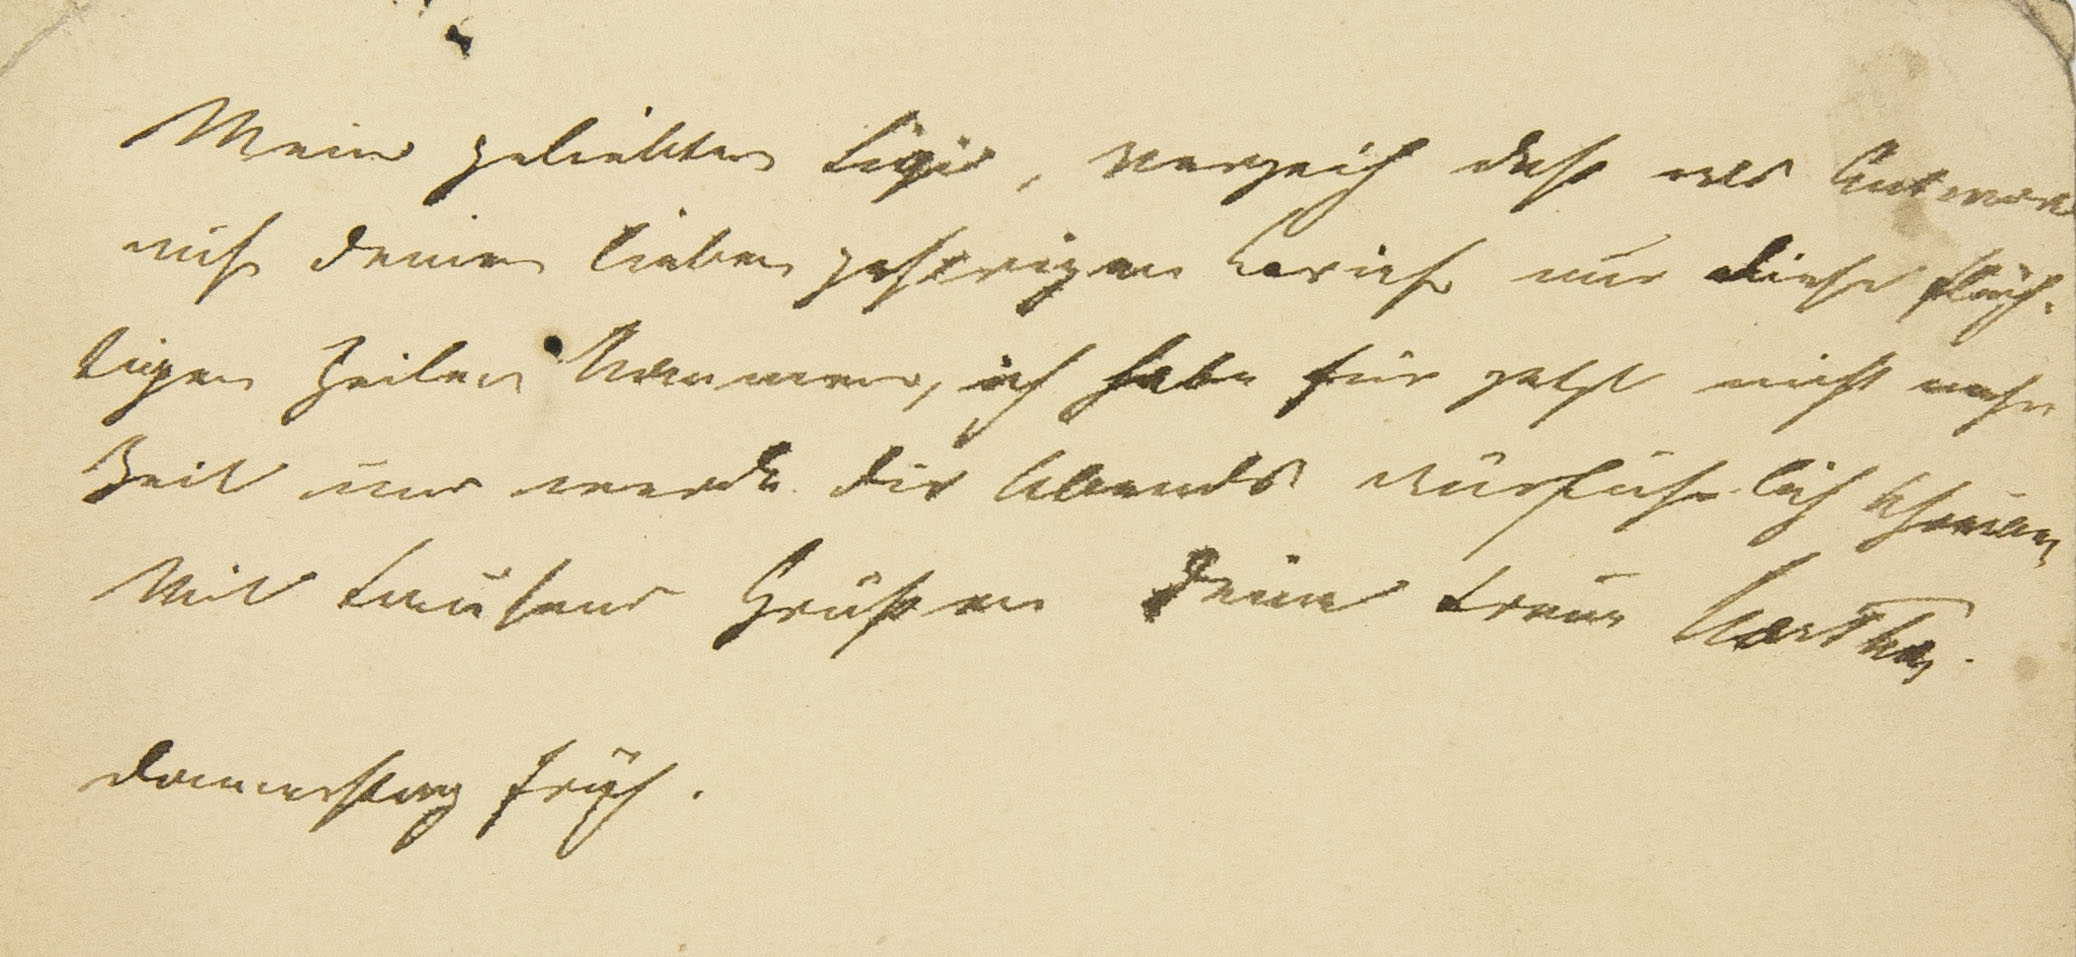 Mein geliebter Sigi, verzeih daß als Antwort
auf deinen lieben gestrigen Brief nur diese flüch-
tigen Zeilen kommen, ich habe für jetzt nicht mehr
Zeit und werde dir Abends ausführlich schreiben
Mit tausend Grüßen Deine treue Martha.
Donnerstag früh.